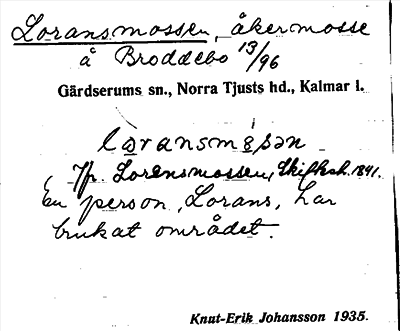 Loransmossen, åkermosse
å Broddebo 13/96
Gärdserums sn., Norra Tjusts hd., Kalmar l.
loransmosən
Jfr. Lorensmossen, Skifksk. 1841.
En person, Lorans, har
brukat området.
Knut-Erik Johansson 1935.